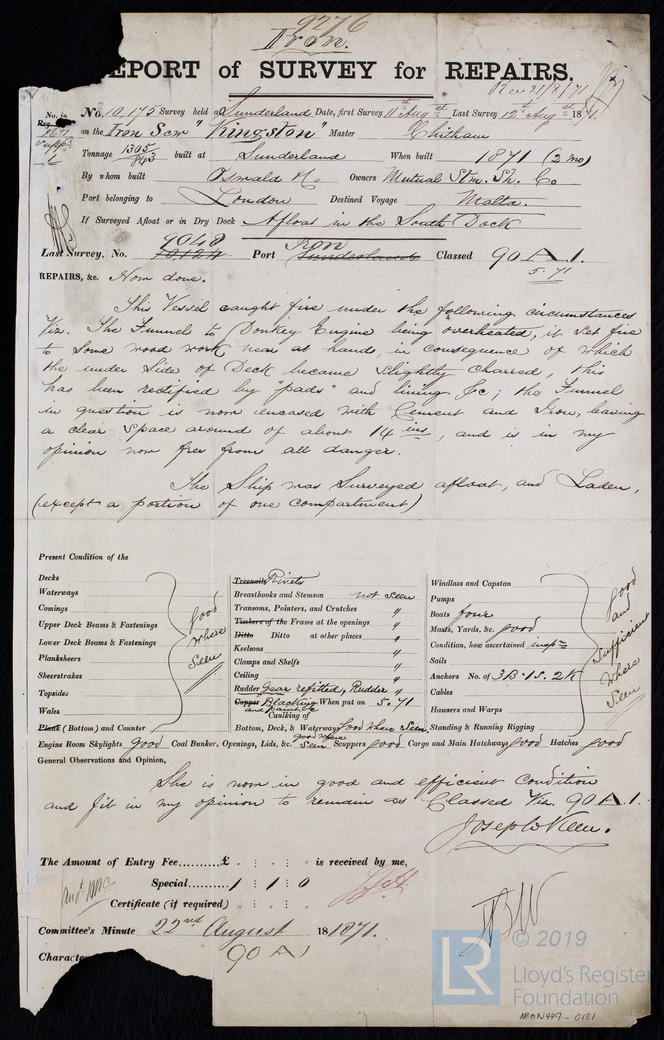 9276
Iron.
REPORT of SURVEY for REPAIRS.
Rec 21/8/71
No. in Reg.
No. 10,175 Survey held at Sunderland Date, first Survey 11th Augst Last Survey 12th Augst 1871.
on the Iron Scw "Kingston" Master Chitham
Tonnage 1305/843 built at Sunderland When built 1871 (2 mo)
By whom built Oswald & Co Owners Mutual Stm. Sh. Co
Port belonging to London Destined Voyage Malta.
If Surveyed Afloat or in Dry Dock Afloat in the South Dock
9048 Iron
Last Survey, No. Port Sunderland Classed 90 A 1.
5.71
REPAIRS, &c. Now done.
This Vessel caught fire under the following circumstances
Viz. The Funnel to Donkey Engine being overheated, it set fire
to some wood work near at hand, in consequence of which
the under side of Deck became slightly charred, this
has been rectified by "pads" and lining &c; the Funnel
in question is now encased with Cement and Iron, leaving
a clear space around of about 14 ins, and is in my
opinion now free from all danger.
The Ship was Surveyed afloat, and Laden,
(except a portion of one compartment)
Present Condition of the
Decks
Waterways
Comings
Upper Deck Beams & Fastenings
Lower Deck Beams & Fastenings
Planksheers
Sheerstrakes
Topsides
Wales
Plank (Bottom) and Counter
good where seen
Treenails Rivets
Breasthooks and Stemson not seen
Transoms, Pointers, and Crutches "
Timbers of the Frame at the openings "
Ditto Ditto at other places "
Keelsons "
Clamps and Shelfs "
Ceiling "
Rudder Gear refitted, Rudder "
Copper Blacking and paint &c When put on 5.71
Caulking of
Bottom, Deck, & Waterways Good where seen
Windlass and Capstan
Pumps
Boats four
Masts, Yards, &c. good
Condition, how ascertained inspn
Sails
Anchors No. of 3B. 1S. 2K
Cables
Hawsers and Warps
Standing & Running Rigging
Good and sufficient where seen
Engine Room Skylights Good Coal Bunker, Openings, Lids, &c. good where seen Scuppers good Cargo and Main Hatchways good Hatches good
General Observations and Opinion,
She is now in good and efficient Condition
and fit in my opinion to remain as Classed Viz. 90 A. 1.
Joseph Keen.
The Amount of Entry Fee..........£ : : is received by me,
Special.....1 : 1 : 0
Certificate (if required) : :
Committee's Minute 22nd August 181871.
Charac
90 A 1
LR
© 2019
Lloyd's Register
Foundation
IRON449-0181